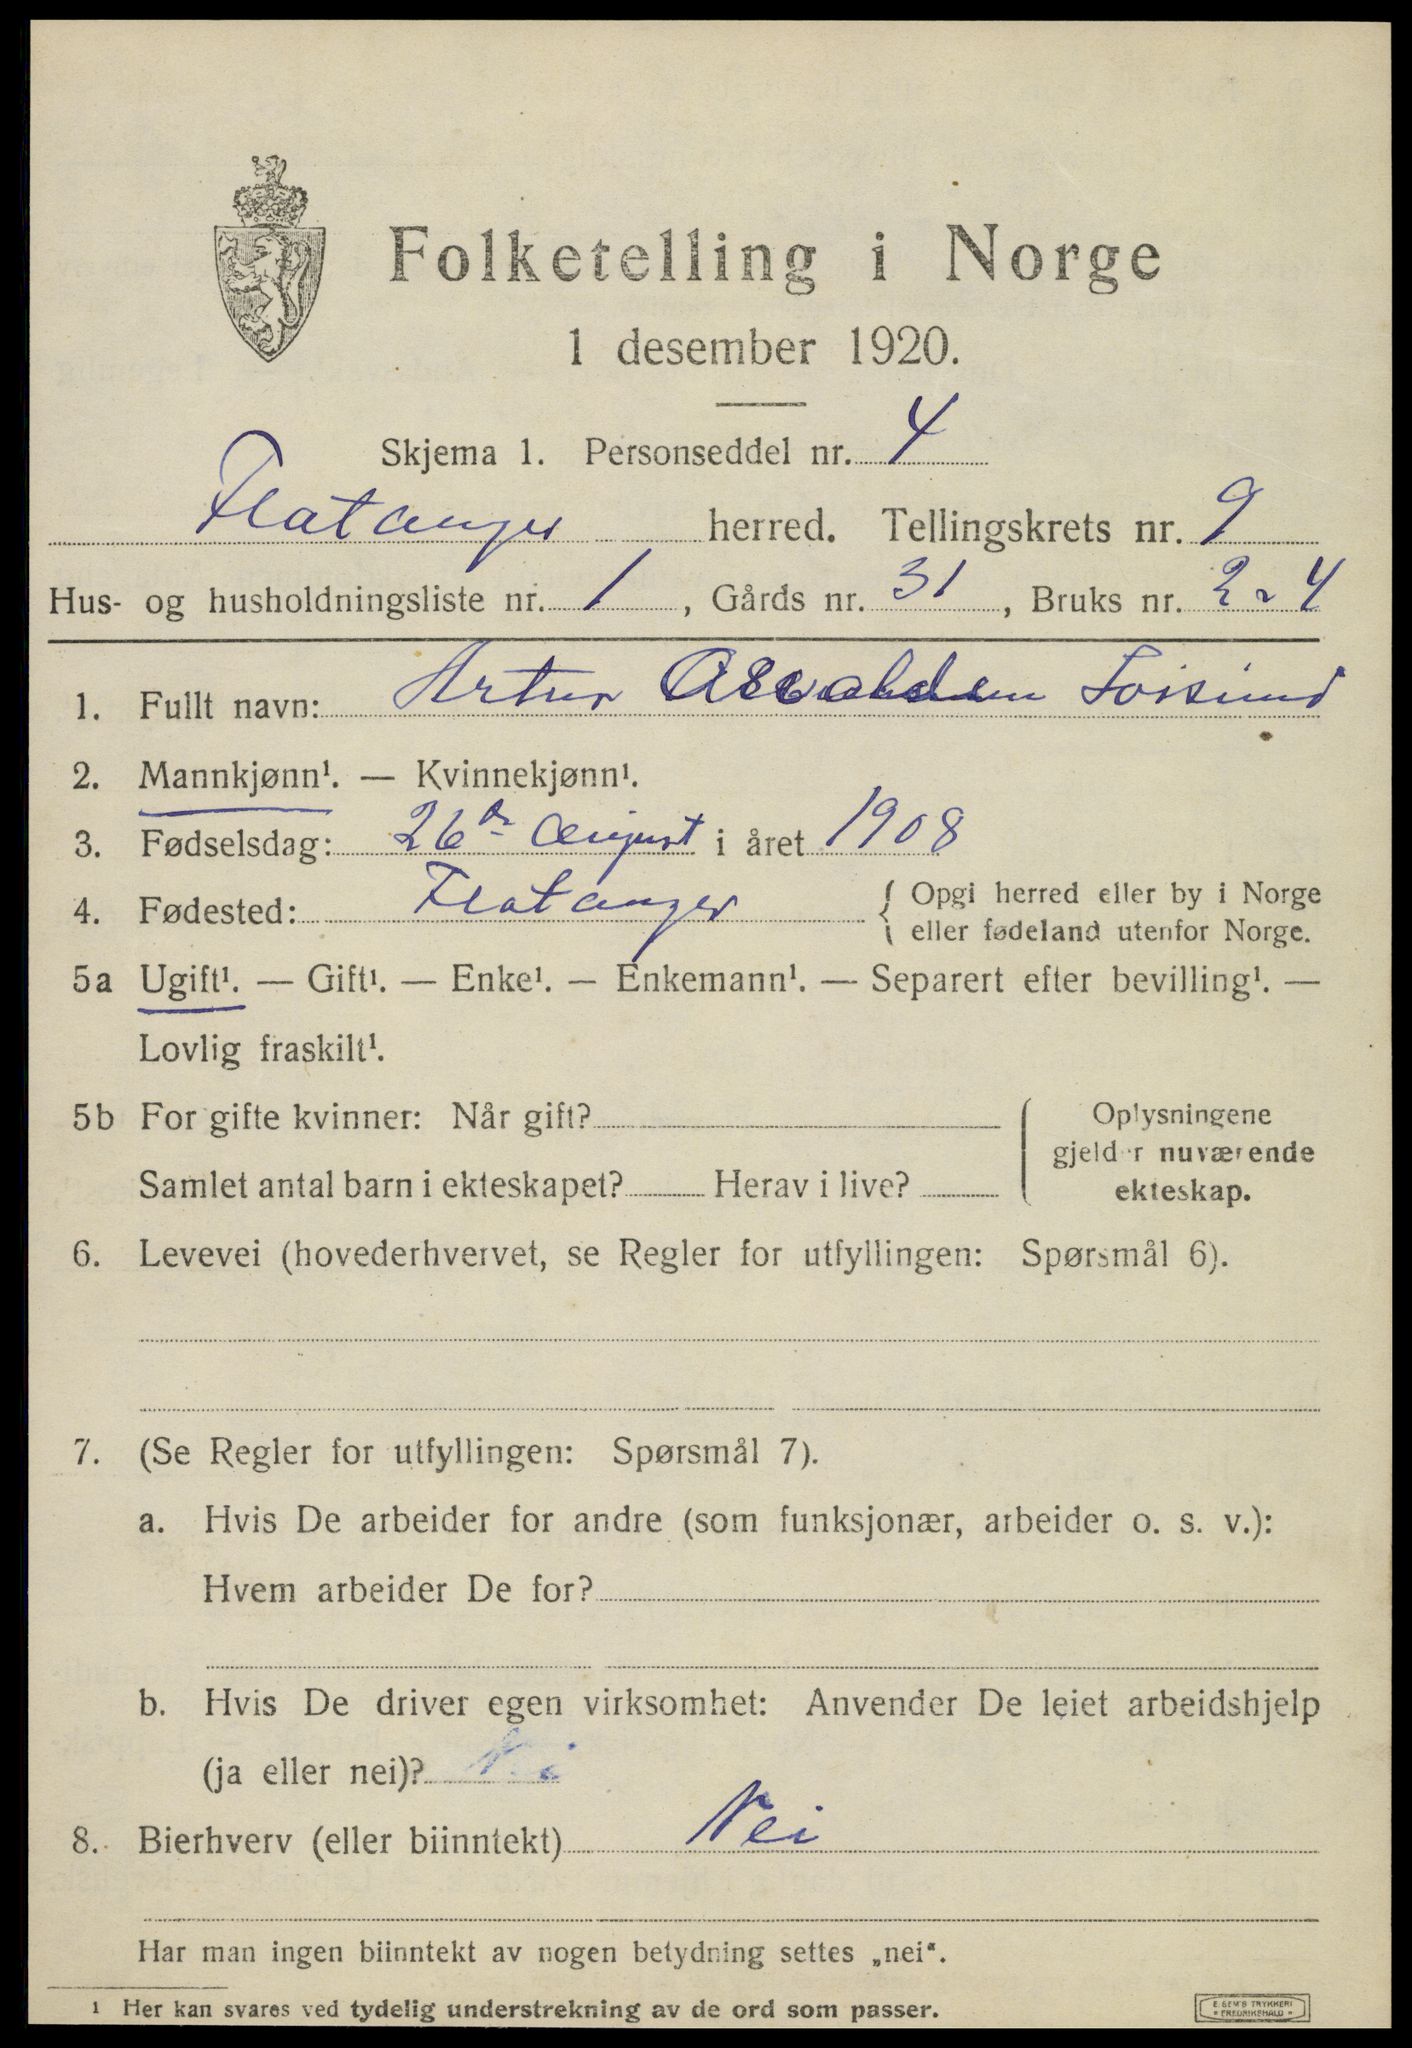 Folketelling i Norge
1 desember 1920.
Skjema 1. Personseddel nr. 4
Flatanger herred. Tellingskrets nr. 9
Hus- og husholdningsliste nr. 1, Gårds nr. 31, Bruks nr. 2 4
1. Fullt navn: Artur
2. Mannkjønn¹. — Kvinnekjønn¹.
3. Fødselsdag: 26de august i året 1908
4. Fødested: Flatanger { Opgi herred eller by i Norge
eller fødeland utenfor Norge.
5a Ugift¹. — Gift¹. — Enke¹. — Enkemann¹. — Separert efter bevilling¹. —
Lovlig fraskilt¹.
5b For gifte kvinner: Når gift? Oplysningene
gjelder nuværende
Samlet antal barn i ekteskapet? Herav i live? ekteskap.
6. Levevei (hovederhvervet, se Regler for utfyllingen: Spørsmål 6).
7. (Se Regler for utfyllingen: Spørsmål 7).
a. Hvis De arbeider for andre (som funksjonær, arbeider o. s. v.):
Hvem arbeider De for?
b. Hvis De driver egen virksomhet: Anvender De leiet arbeidshjelp
(ja eller nei)? Nei
8. Bierhverv (eller biinntekt) Nei
Har man ingen biinntekt av nogen betydning settes „nei“.
1 Her kan svares ved tydelig understrekning av de ord som passer.
E. SEM'S TRYKKERI
FREDRIKSHALD